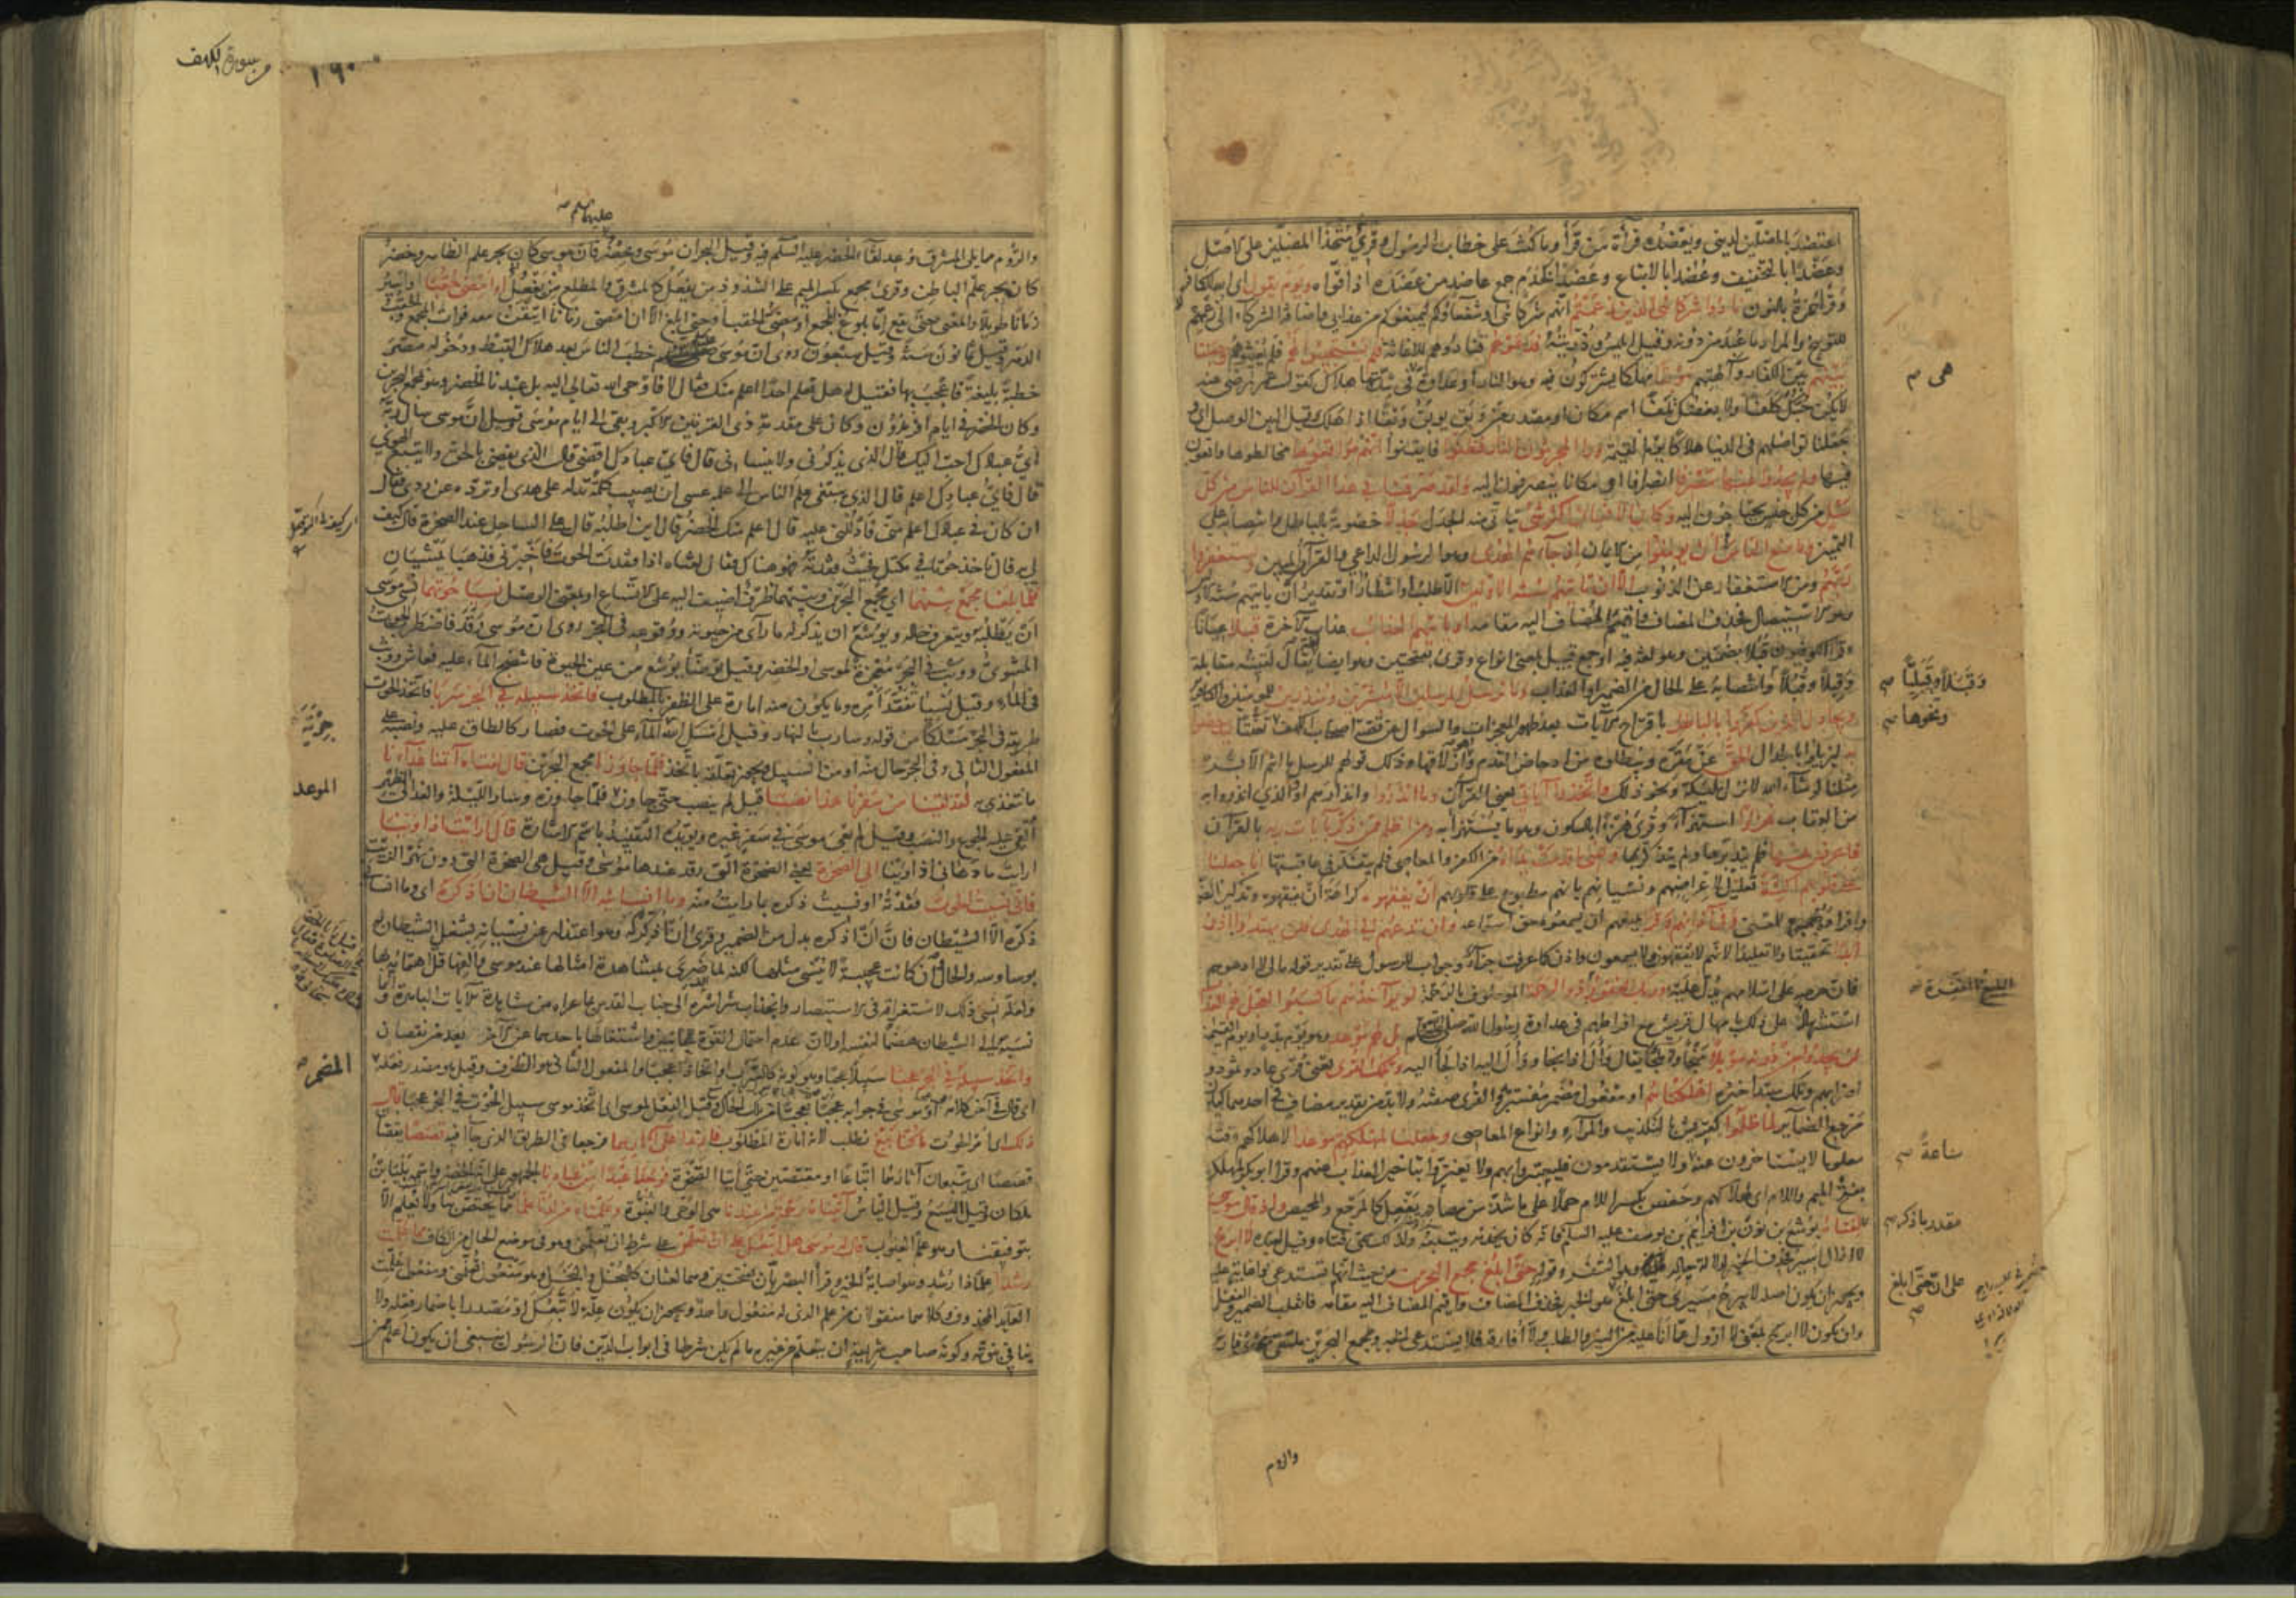 اعتضد بالمضلين لديني ويعضده قرأة من قرأ وما كنت على خطاب الرسول وقرئ متخذا المضلين على الاصل
وعضدا بالتخفيف وعضدا بالاتباع وعضدا كخدم جمع عاضد من عضده اذا قواه ويوم يقول اى الله للكافر
وقرأ حمزة بالنون نادوا شركائى الذين زعمتم انهم شركائى او شفعاؤكم ليمنعوكم من عذابي واضافة الشركاء الى زعمهم
للتوبيخ والمراد ما عبد من دونه وقيل ابليس وذريته فدعوهم فنادوهم للاغاثة فلم يستجيبوا لهم فلم يغيثوهم وجعلنا
بينهم بين الكفار وآلهتهم موبقا مهلكا يشتركون فيه وهو النار او عداوة هى في شدتها هلاك كقول عمر رضى عنه
لا يكن حبك كلفا ولا بغضك تلفا اسم مكان او مصدر من وبق يوبق وبقا اذا هلك وقيل البين الوصل اى
جعلنا تواصلهم في الدنيا هلاكا يوم القيمة ورأى المجرمون النار فظنوا فايقنوا انهم مواقعوها مخالطوها واقعون
فيها ولم يجدوا عنها مصرفا انصرافا او مكانا ينصرفون اليه ولقد صرفنا في هذا القرآن للناس من كل
مثل من كل جنس يحتاجون اليه وكان الانسان اكثر شئ يتأتى منه الجدل جدلا خصومة بالباطل وانتصابه على
التميز وما منع الناس ان يؤمنوا من الايمان اذ جاءهم الهدى وهو الرسول الداعي والقرآن المبين ويستغفروا
ربهم ومن الاستغفار عن الذنوب الا ان تأتيهم سنة الاولين الا طلب او انتظار او تقدير ان يأتيهم سنة الاولين
وهو الاستيصال فحذف المضاف واقيم المضاف اليه مقامه او يأتيهم العذاب عذاب الآخرة قبلا عيانا
وقرأ الكوفيون قبلا بضمتين وهو لغة فيه او جمع قبيل بمعنى انواع وقرئ بفتحتين وهو ايضا لغة يقال لقيته مقابلة
وقبلا وقبلا وانتصابه على الحال من الضمير او العذاب وما نرسل المرسلين الا مبشرين ومنذرين للمؤمنين والكافرين
ويجادل الذين كفروا بالباطل باقتراح الآيات بعد ظهور المعجزات والسؤال عن قصة اصحاب الكهف تعنتا ليدحضوا
به ليزيلوا بالجدال الحق عن مقره ويبطلوه من ادحاض القدم وهو ازلاقها وذلك قولهم للرسل ما انتم الا بشر
مثلنا لو شاء الله لانزل مليكة ونحو ذلك واتخذوا آياتي يعني القرآن وما انذروا وانذارهم او الذي انذروا به
من العقاب هزوا استهزاء وقرئ هزءا بالسكون وهو ما يستهزأ به ومن اظلم ممن ذكر بآيات ربه بالقرآن
فاعرض عنها فلم يتدبرها ولم يتذكر بها ونسي ما قدمت يداه من الكفر والمعاصي فلم يتفكر في عاقبتها انا جعلنا
على قلوبهم اكنة تعليل لاعراضهم ونسيانهم بانهم مطبوع على قلوبهم ان يفقهوه كراهة ان يفقهوه وتذكير الضمير
وافراده للمعنى وفي آذانهم وقرا يمنعهم ان يسمعوه حق استماعه وان تدعهم الى الهدى فلن يهتدوا اذا
ابدا تحقيقا ولا تقليدا لانهم لا يفقهون ولا يسمعون واذن كما عرفت جزاء وجواب للرسول على تقدير قوله مالى لا ادعوهم
فان حرصه على اسلامهم يدل عليه وربك الغفور ذو الرحمة الموصوف بالرحمة لو يؤاخذهم بما كسبوا لعجل لهم العذاب
استشهاد على ذلك بامهال قريش مع افراطهم في عداوة رسول الله صلى بل لهم موعد وهو يوم بدر او يوم القيمة
لن يجدوا من دونه موئلا منجا ولا ملجأ يقال وأل اذا نجا ووأل اليه اذا لجأ اليه وتلك القرى يعني قرى عاد وثمود و
اضرابهم وتلك مبتدأ خبره اهلكناهم او مفعول مضمر مفسر به والقرى صفته ولا بد من تقدير مضاف في احدهما ليكون
مرجع الضماير لما ظلموا كقريش بالتكذيب والمراء وانواع المعاصي وجعلنا لمهلكهم موعدا لاهلاكهم وقتا
معلوما لا يستاخرون عنه ولا يستقدمون فليعتبروا بهم ولا يغتروا بتاخير العذاب عنهم وقرأ ابو بكر لمهلكهم
بفتح الميم واللام اى لهلاكهم وحفص بكسر اللام حملا على ما شذ من مصادر يفعل كالمرجع والمحيص واذ قال موسى
لفتاه يوشع بن نون بن افرائيم بن يوسف عليه السلام فانه كان يخدمه ويتبعه ولذلك سمى فتاه وقيل لعبده لا ابرح
لا ازال اسير فحذف الخبر لدلالة حاله وهو السفر وقوله حتى ابلغ مجمع البحرين من حيث انها تستدعي ذا غاية عليه
ويجوز ان يكون اصله لا يبرح مسيري حتى ابلغ على ان حتى ابلغ هو الخبر فحذف المضاف واقيم المضاف اليه مقامه فانقلب الضمير والفعل
وان يكون لا ابرح بمعنى لا ازول عما انا عليه من السير والطلب ولا افارقه فلا يستدعى الخبر ومجمع البحرين ملتقى بحرى فارس
هى
وقبلا وقبليا
ونحوها
ساعة
مقدر باذكر
على ان حتى ابلغ
والروم
من سورة الكهف
١٩٠
عليهما السلم
والروم مما يلي المشرق وعد لقاء الخضر عليه السلم فيه وقيل البحران موسى وخضر فان موسى كان بحر علم الظاهر وخضر
كان بحر علم الباطن وقرئ مجمع بكسر الميم على الشذوذ من يفعل كالمشرق والمطلع من يفعل او امضى حقبا او اسير
زمانا طويلا والمعنى حتى يقع اما بلوغ المجمع او مضى الحقب او حتى ابلغ الا ان امضى زمانا اتيقن معه فوات المجمع والحقب
الدهر وقيل ثمانون سنة وقيل سبعون روى ان موسى خطب الناس بعد هلاك القبط ودخوله مصر
خطبة بليغة فاعجب بها فقيل له هل تعلم احدا اعلم منك فقال لا فاوحى الله تعالى اليه بل عبدنا الخضر وهو بمجمع البحرين
وكان الخضر في ايام افريدون وكان على مقدمة ذي القرنين الاكبر وبقي الى ايام موسى وقيل ان موسى سأل ربه
اى عبادك احب اليك قال الذي يذكرني ولا ينساني قال فاى عبادك اقضى قال الذي يقضي بالحق ولا يتبع الهوى
قال فاى عبادك اعلم قال الذي يبتغي علم الناس الى علمه عسى ان يصيب كلمة تدله على هدى او ترده عن ردى فقال
ان كان في عبادك اعلم منى فادللني عليه قال اعلم منك الخضر قال اين اطلبه قال على الساحل عند الصخرة قال كيف
لي به قال تاخذ حوتا في مكتل فحيث فقدته فهو هناك فقال لفتاه اذا فقدت الحوت فاخبرني فذهبا يمشيان
فلما بلغا مجمع بينهما اى مجمع البحرين وبينهما ظرف اضيف اليه على الاتساع او بمعنى الوصل نسيا حوتهما نسى موسى
ان يطلبه ويتعرف حاله ويوشع ان يذكر له ما رآى من حيوته ووقوعه في البحر روى ان موسى رقد فاضطرب الحوت
المشوى ووثب في البحر معجزة لموسى او الخضر وقيل توضأ يوشع من عين الحيوة فانتضح الماء عليه فعاش ووثب
في الماء وقيل نسيا تفقد امره وما يكون منه امارة على الظفر بالمطلوب فاتخذ سبيله في البحر سربا فاتخذ الحوت
طريقه في البحر مسلكا من قوله وسارب بالنهار وقيل امسك الله الماء على الحوت فصار كالطاق عليه ونصبه على
المفعول الثاني وفي البحر حال منه او من السبيل ويجوز تعلقه باتخذ فلما جاوزا مجمع البحرين قال لفتاه آتنا غداءنا
ما نتغذى به لقد لقينا من سفرنا هذا نصبا قيل لم ينصب حتى جاوز الموعد فلما جاوزه وسار الليلة والغد الى الظهر
القى عليه الجوع والنصب وقيل لم يعى موسى في سفر غيره ويؤيده التقييد باسم الاشارة قال ارايت اذ اوينا
ارايت ما دهاني اذ اوينا الى الصخرة يعنى الصخرة التي رقد عندها موسى وقيل هى الصخرة التي دون نهر الزيت
فاني نسيت الحوت فقدته او نسيت ذكره بما رايت منه وما انسانيه الا الشيطان ان اذكره اى وما انساني
ذكره الا الشيطان فان ان اذكره بدل من الضمير وقرئ ان اذكركه وهو اعتذار عن نسيانه بشغل الشيطان له
بوساوسه والحال وان كانت عجيبة لا ينسى مثلها لكنه لما ضرى بمشاهدة امثالها عند موسى والفها قل اهتمامه بها
ولعله نسي ذلك لاستغراقه في الاستبصار وانجذاب شراشره الى جناب القدس بما عراه من مشاهدة الآيات الباهرة وانما
نسبه الى الشيطان هضما لنفسه او لان عدم احتمال القوة للجانبين واشتغالها باحدهما عن الآخر يعد من نقصان
واتخذ سبيله في البحر عجبا سبيلا عجبا وهو كونه كالسرب او اتخاذا عجبا والمفعول الثاني هو الظرف وقيل هو مصدر فعله المضمر
اى قال في آخر كلامه او موسى في جوابه عجبا تعجبا من تلك الحال وقيل الفعل لموسى اى اتخذ موسى سبيل الحوت في البحر عجبا قال
ذلك اى امر الحوت ما كنا نبغ نطلب لانه امارة المطلوب فارتدا على آثارهما فرجعا في الطريق الذي جاآ فيه قصصا يقصان
قصصا اى يتبعان آثارهما اتباعا او مقتصين حتى اتيا الصخرة فوجدا عبدا من عبادنا الجمهور على انه الخضر واسمه بليا بن
ملكان وقيل اليسع وقيل الياس آتيناه رحمة من عندنا هى الوحى والنبوة وعلمناه من لدنا علما مما يختص بنا ولا يعلم الا
بتوفيقنا وهو علم الغيوب قال له موسى هل اتبعك على ان تعلمن على شرط ان تعلمني وهو في موضع الحال من الكاف مما علمت
رشدا علما ذا رشد وهو اصابة الخير وقرأ البصريان بفتحتين وهما لغتان كالبخل والبخل وهو مفعول تعلمني ومفعول علمت
العايد المحذوف وكلاهما منقولان من علم الذي له مفعول واحد ويجوز ان يكون علة لاتبعك او مصدرا باضمار فعله ولا
ينافي نبوته وكونه صاحب شريعة ان يتعلم من غيره ما لم يكن شرطا في ابواب الدين فان الرسول ينبغي ان يكون اعلم ممن
الموعد
المضمر